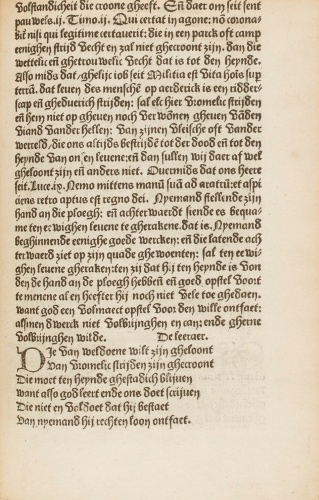 volstandicheit die croone gheeft. En̄ daer om seit sent
pauwels.ij. Timo.ij. Qui certat in agone: nō corona-
bit̄ nisi qui legitime certauerit: die in een parck oft camp
eenighen strijd vecht en zal niet ghecroont zijn. dan die
wettelic en̄ ghetrouwelic vecht dat is tot den heynde.
Also mids dat/ghelijc iob seit Militia est vita hoīs sup
terrā. dat leuen des menschē op aerderick is een ridder-
scap en̄ gheduerich strijden: sal elc hier vromelic strijden
en̄ hem niet op gheuen noch verwōnen gheuen vādēn
viand vander hellen: van zijnen vleische oft vander
werreld/die ons altijds bestrijdē tot der dood en̄ tot den
heynde van onsen leuene: en̄ dan sullen wij daer af wel
gheloont zijn en̄ anders niet. Ouermids dat ons heere
seit. Luce.ix. Nemo mittens manū suā ad aratrū: et aspi
ciens retro aptus est regno dei. Nyemand stellende zijn
hand an die ploegh: en̄ achterwaerd siende es bequa-
me ten eewighen leuene te gherakene. dat is. Nyemand
beghinnende eenighe goede wercken: en̄ die latende ach
terwaerd ziet op zijn quade ghewoenten: sal ten eewi-
ghen leuene gheraken: ten zij dat hij ten heynde is von
den de hand an de ploegh hebbēn en̄ goed opstel voort
te menene al en heefter hij noch niet vele toe ghedaen.
want god een volmaect opstel voor den wille ontfaet:
als men dwerck niet volbrijnghen en can: ende gherne
volbrijnghen wilde. De leeraer.
DIe van weldoene wilt zijn gheloont
Van vromelic strijden zijn ghecroont
Die moet ten heynde ghestadich blijuen
want also god leert ende ons doet scrijuen
Die niet en voldoet dat hij bestaet
van nyemand hij rechten loon ontfaet.